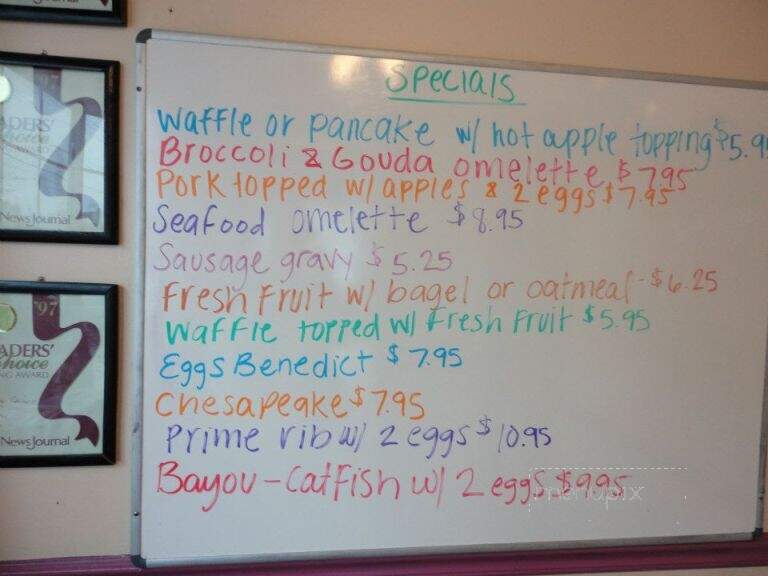 Specials
Waffle or pancake w/ hot apple topping $5.95
Broccoli & Gouda omelette $7.95
Pork topped w/ apples & 2 eggs $7.95
Seafood omelette $8.95
Sausage gravy $5.25
Fresh Fruit w/ bagel or oatmeal - $6.25
Waffle topped w/ Fresh Fruit $5.95
Eggs Benedict $7.95
Chesapeake $7.95
Prime rib w/ 2 eggs $10.95
Bayou - Catfish w/ 2 eggs $9.95
menupix
ADERS'
hoice
AWARD
News Journal
'97
ADERS'
hoice
NG AWARD
News Journal